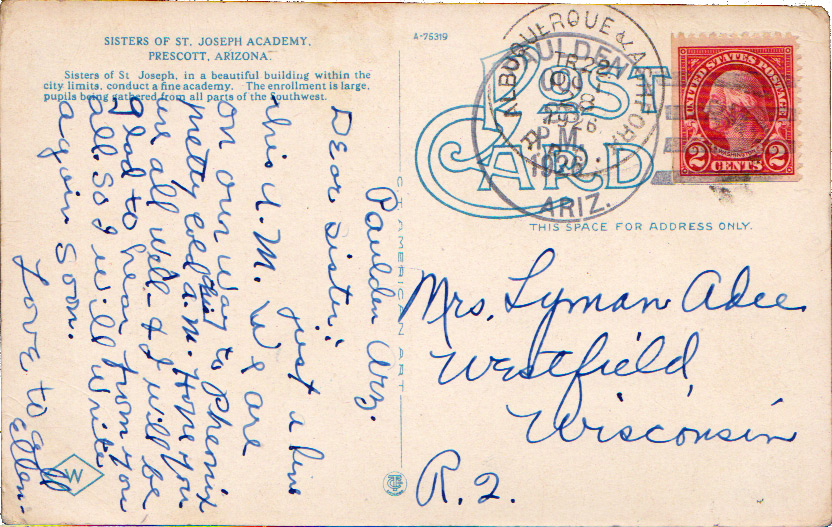 SISTERS OF ST. JOSEPH ACADEMY,
PRESCOTT, ARIZONA.
Sisters of St. Joseph, in a beautiful building within the
city limits, conduct a fine academy. The enrollment is large,
pupils being gathered from all parts of the Southwest.
Paulden Ary.
Dear Sister:-
just a line
this A.M. We are
on our way to Pheonix
pretty cold this a.m. Hope you
are all well - & I will be
glad to hear from you
all. So I will write
again soon.
Love to all
Ellen-
W
C.T. AMERICAN ART
A-75319
POST
CARD
ALBUQUERQUE & ASHFORK
R.P.O.
TR 22
OCT
28
1926
PAULDEN
OCT
28
P.M.
1926
ARIZ.
UNITED STATES POSTAGE
WASHINGTON
2 CENTS 2
THIS SPACE FOR ADDRESS ONLY.
Mrs. Lyman Adee
Westfield,
Wisconsin
R.2.